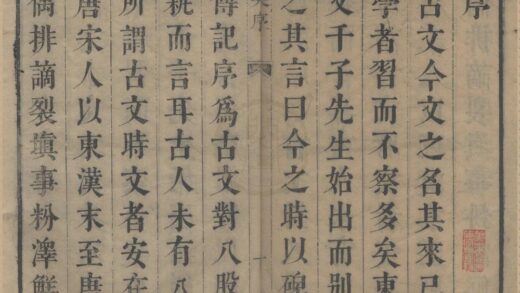 序
古文今文之名其來已
學者習而不察多矣東
文千子先生始出而别
之其言曰今之時以碑
序
一
傳記序爲古文對八股
銚而言耳古人未有八
所謂古文時文者安在
唐宋人以東漢末至唐
偶排謫裂塡事粉澤鮮